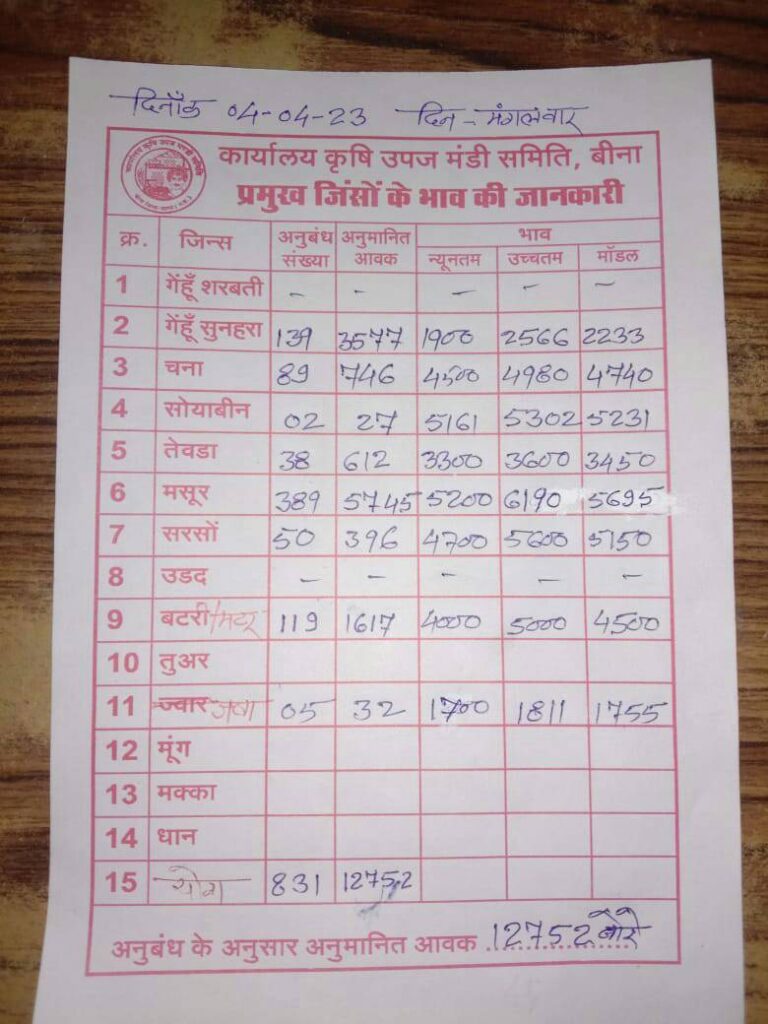 दिनाँक 04-04-23 दिन - मंगलवार
कार्यालय कृषि उपज मंडी समिति, बीना
प्रमुख जिंसों के भाव की जानकारी
क्र. जिन्स अनुबंध संख्या अनुमानित आवक भाव
न्यूनतम उच्चतम मॉडल
1 गेंहूँ शरबती - - - - -
2 गेंहूँ सुनहरा 139 3577 1900 2566 2233
3 चना 89 746 4500 4980 4740
4 सोयाबीन 02 27 5161 5302 5231
5 तेवडा 38 612 3300 3600 3450
6 मसूर 389 5745 5200 6190 5695
7 सरसों 50 396 4700 5600 5150
8 उडद - - - - -
9 बटरी/मटर 119 1617 4000 5000 4500
10 तुअर
11 ज्वार जवा 05 32 1700 1811 1755
12 मूंग
13 मक्का
14 धान
15 योग 831 12752
अनुबंध के अनुसार अनुमानित आवक 12752 बोरे